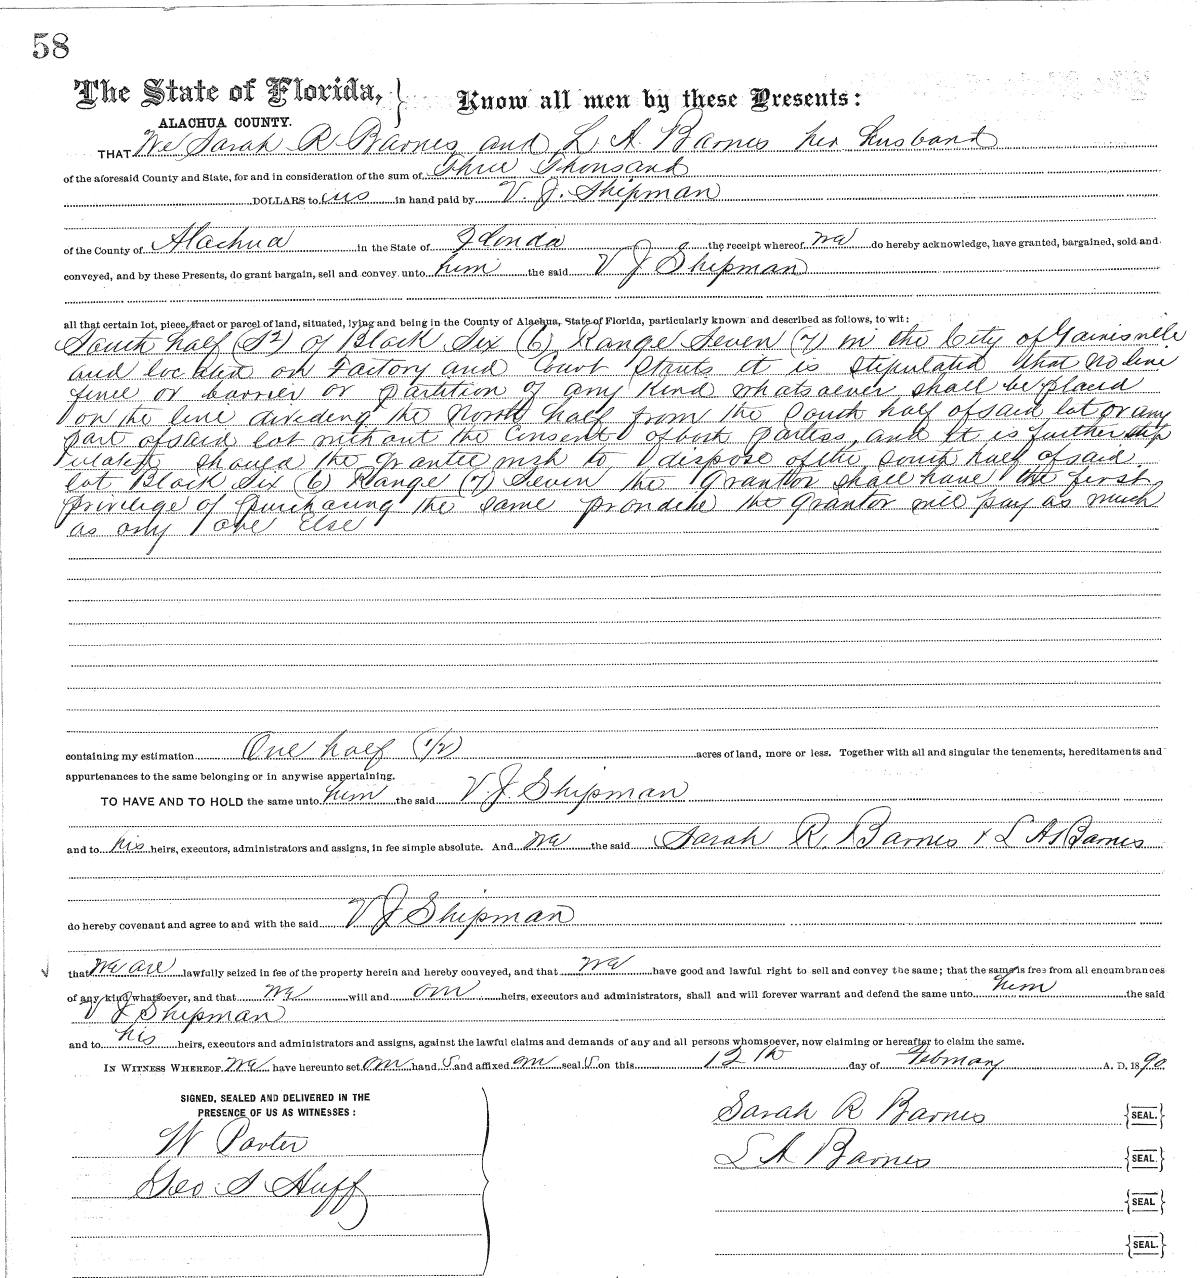 58
The State of Florida, } Know all men by these Presents:
ALACHUA COUNTY.
THAT We Sarah R Barnes and L A Barnes her husband
of the aforesaid County and State, for and in consideration of the sum of Three Thousand
DOLLARS to us in hand paid by V. J. Shipman
of the County of Alachua in the State of Florida the receipt whereof we do hereby acknowledge, have granted, bargained, sold and
conveyed, and by these Presents, do grant bargain, sell and convey unto him the said V J Shipman
all that certain lot, piece, tract or parcel of land, situated, lying and being in the County of Alachua, State of Florida, particularly known and described as follows, to wit:
South half (S2) of Block Six (6) Range Seven (7) in the City of Gainisville
and located on Factory and Court Struts it is stipulated that no line
fence or barrier or partition of any kind whatsoever shall be placed
on the line dividing the North half from the South half of said lot or any
part of said lot without the consent of both parties, and it is further stip
ulated should the grantee wish to dispose of the south half of said
lot Block Six (6) Range (7) Seven the Granttor shall have the first
privilege of purchasing the same provided the grantor will pay as much
as any one Else
containing my estimation One half (1/2) acres of land, more or less. Together with all and singular the tenements, hereditaments and
appurtenances to the same belonging or in anywise appertaining.
TO HAVE AND TO HOLD the same unto him the said V. J. Shipman
and to his heirs, executors, administrators and assigns, in fee simple absolute. And we the said Sarah R Barnes & L A Barnes
do hereby covenant and agree to and with the said V J Shipman
that we are lawfully seized in fee of the property herein and hereby conveyed, and that we have good and lawful right to sell and convey the same; that the same is free from all encumbrances
of any kind whatsoever, and that we will and our heirs, executors and administrators, shall and will forever warrant and defend the same unto him the said
V J Shipman
and to his heirs, executors and administrators and assigns, against the lawful claims and demands of any and all persons whomsoever, now claiming or hereafter to claim the same.
IN WITNESS WHEREOF we have hereunto set our hand s and affixed our seal s on this 12th day of February A. D. 1890
SIGNED, SEALED AND DELIVERED IN THE
PRESENCE OF US AS WITNESSES:
W Porter
Geo S Huff
Sarah R Barnes {SEAL.}
L A Barnes {SEAL.}
{SEAL}
{SEAL.}